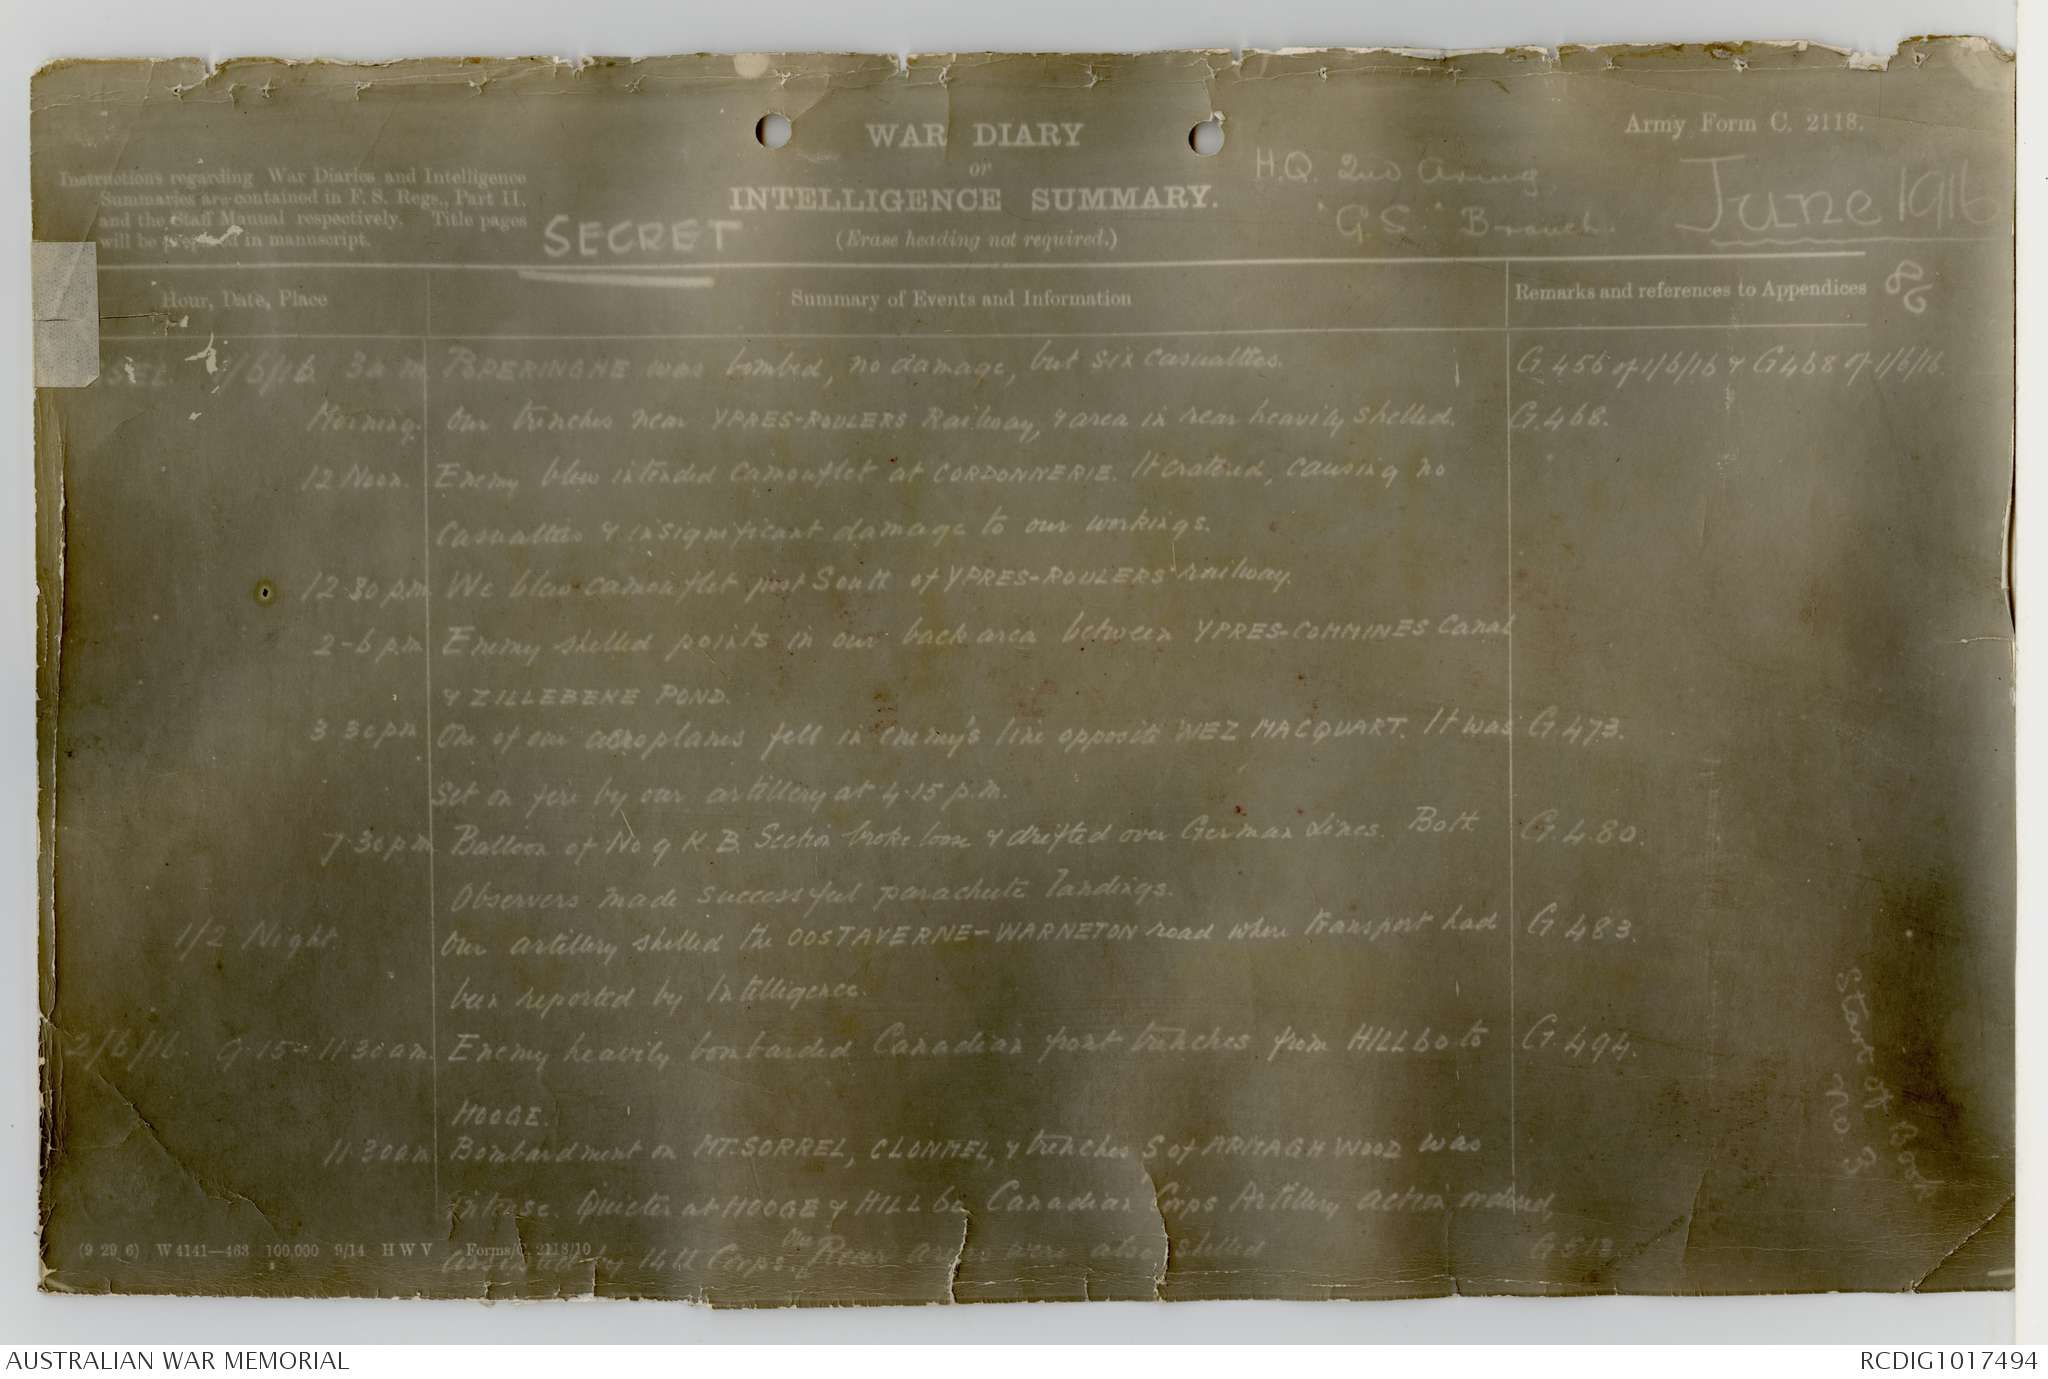 Army Form C. 2118.
WAR DIARY
or
INTELLIGENCE SUMMARY.
(Erase heading not required.)
Instructions regarding War Diaries and Intelligence
Summaries are contained in F. S. Regs., Part II.
and the Staff Manual respectively. Title pages
will be prepared in manuscript.
SECRET
H.Q. 2nd Army
"G.S." Branch.
June 1916
Hour, Date, Place
Summary of Events and Information
Remarks and references to Appendices
SEL. 1/6/16. 3 a.m. POPERINGHE was bombed, no damage, but six casualties. G.456 of 1/6/16 & G468 of 1/6/16.
Morning. Our trenches near YPRES-ROULERS Railway, & area in rear heavily shelled. G.468.
12 Noon. Enemy blew intended camouflet at CORDONNERIE. It cratered, causing no
casualties & insignificant damage to our workings.
12.30 p.m. We blew camouflet just South of YPRES-ROULERS railway.
2-6 p.m. Enemy shelled points in our back area between YPRES-COMMINES Canal
& ZILLEBEKE POND.
3.30 pm One of our aeroplanes fell in enemy's line opposite WEZ MACQUART. It was G.473.
set on fire by our artillery at 4.15 p.m.
7.30 pm Balloon of No 9 K.B. Section broke loose & drifted over German Lines. Both G.480.
Observers made successful parachute landings.
1/2 Night. Our artillery shelled the OOSTAVERNE-WARNETON road where transport had G.483.
been reported by Intelligence.
2/6/16. 9.15 - 11.30 am. Enemy heavily bombarded Canadian front trenches from HILL 60 to G.494.
HOOGE.
11.30 am Bombardment on MT. SORREL, CLONMEL, & trenches S of ARMAGH WOOD was
intense. Quieter at HOOGE & HILL 60. Canadian Corps Artillery action ordered,
assisted by 14th Corps. Our Rear areas were also shelled G.513.
(9 29 6) W 4141—463 100,000 9/14 H W V Forms/C. 2118/10
Start of Book
No. 3
AUSTRALIAN WAR MEMORIAL
RCDIG1017494